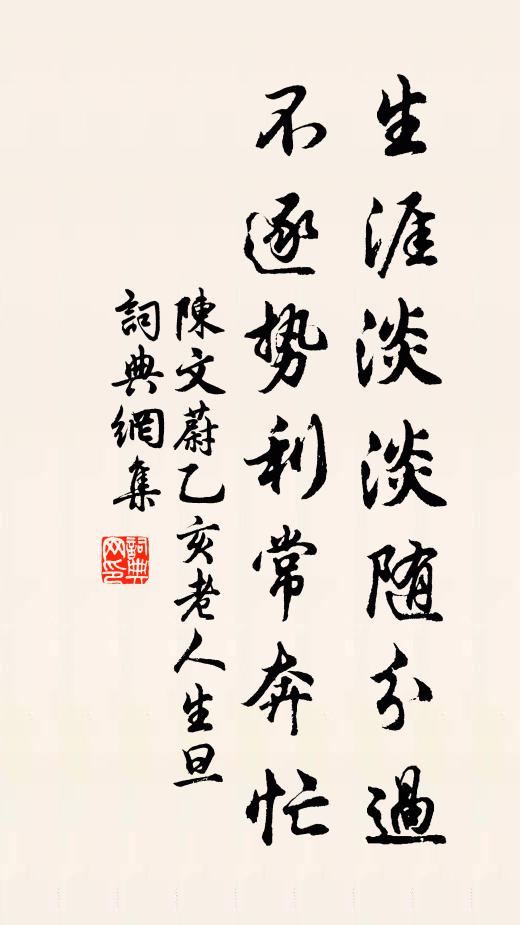 生涯淡淡随分過
不逐势利常奔忙
陳文蔚乙亥老人生旦
詞典網集
詞典網印